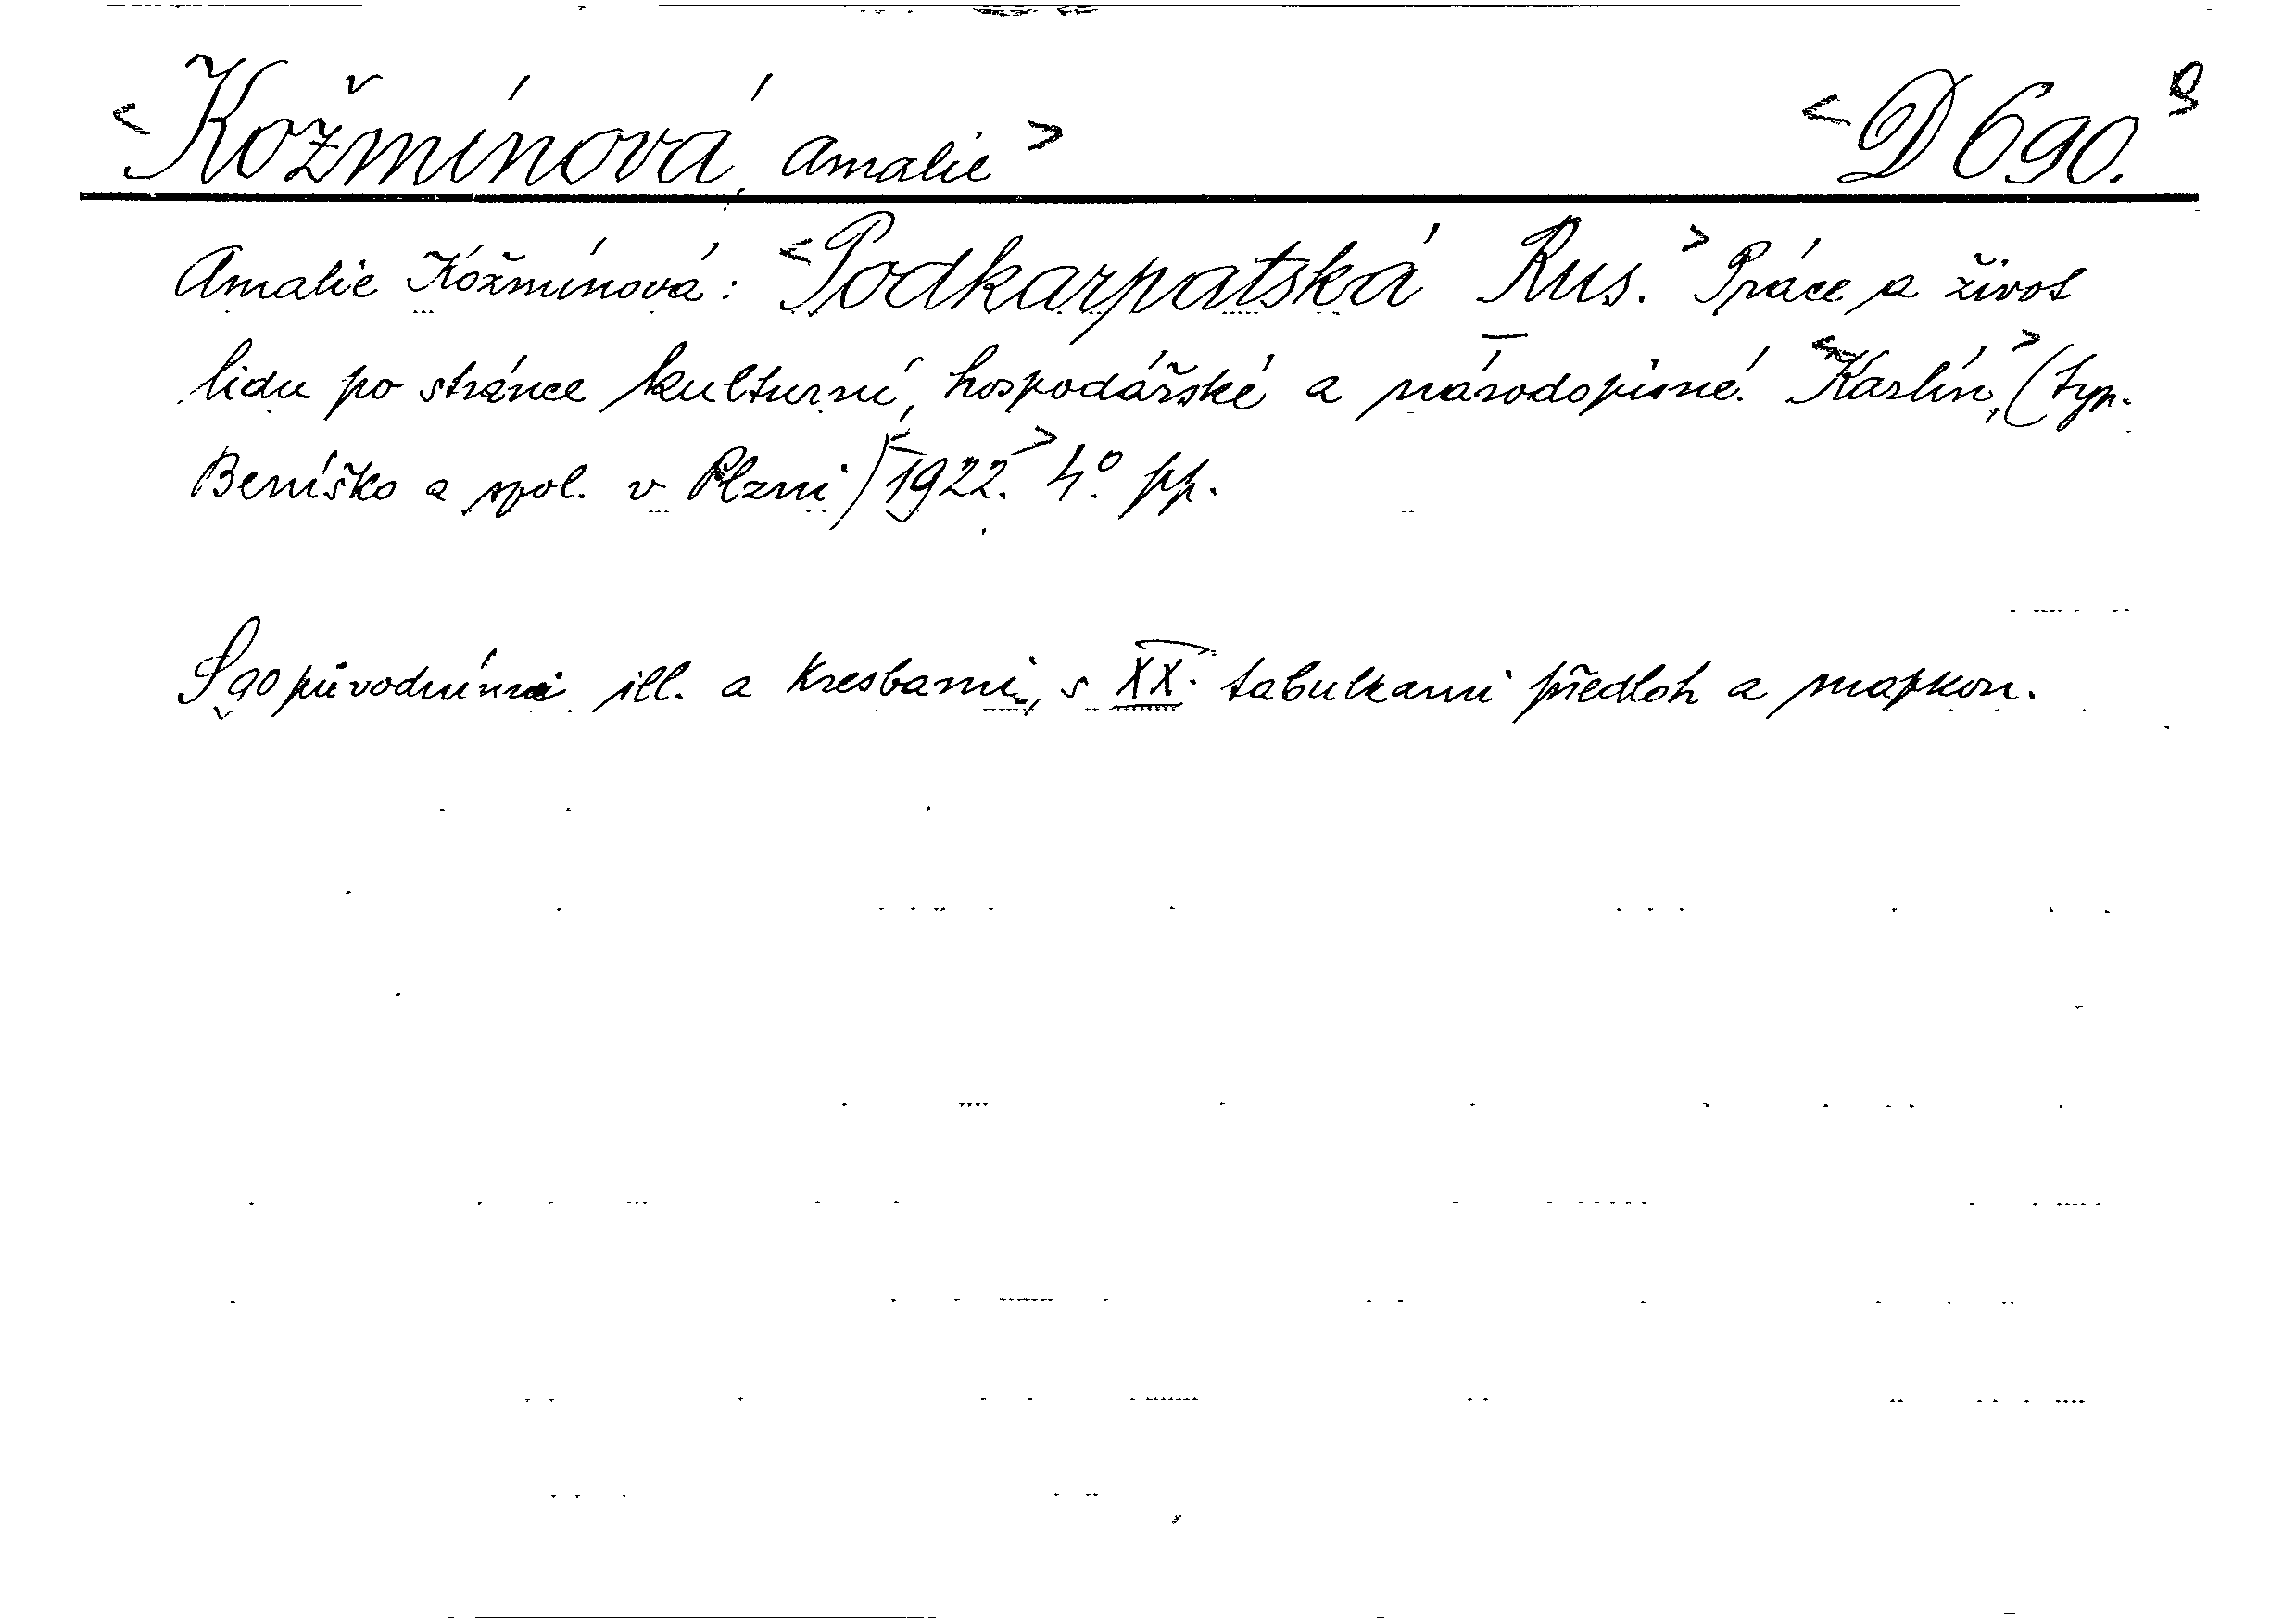 <Kožmínová, Amalie> <D 690.
Amalie Kožmínová: <Podkarpatská Rus.> Práce a život
lidu po stránce kulturní, hospodářské a národopisné. <Karlín,> (typ.
Beníško a spol. v Plzni) <1922.> 4º. pp.
S 90 původními ill. a kresbami, s XX. tabulkami předloh a mapkou.